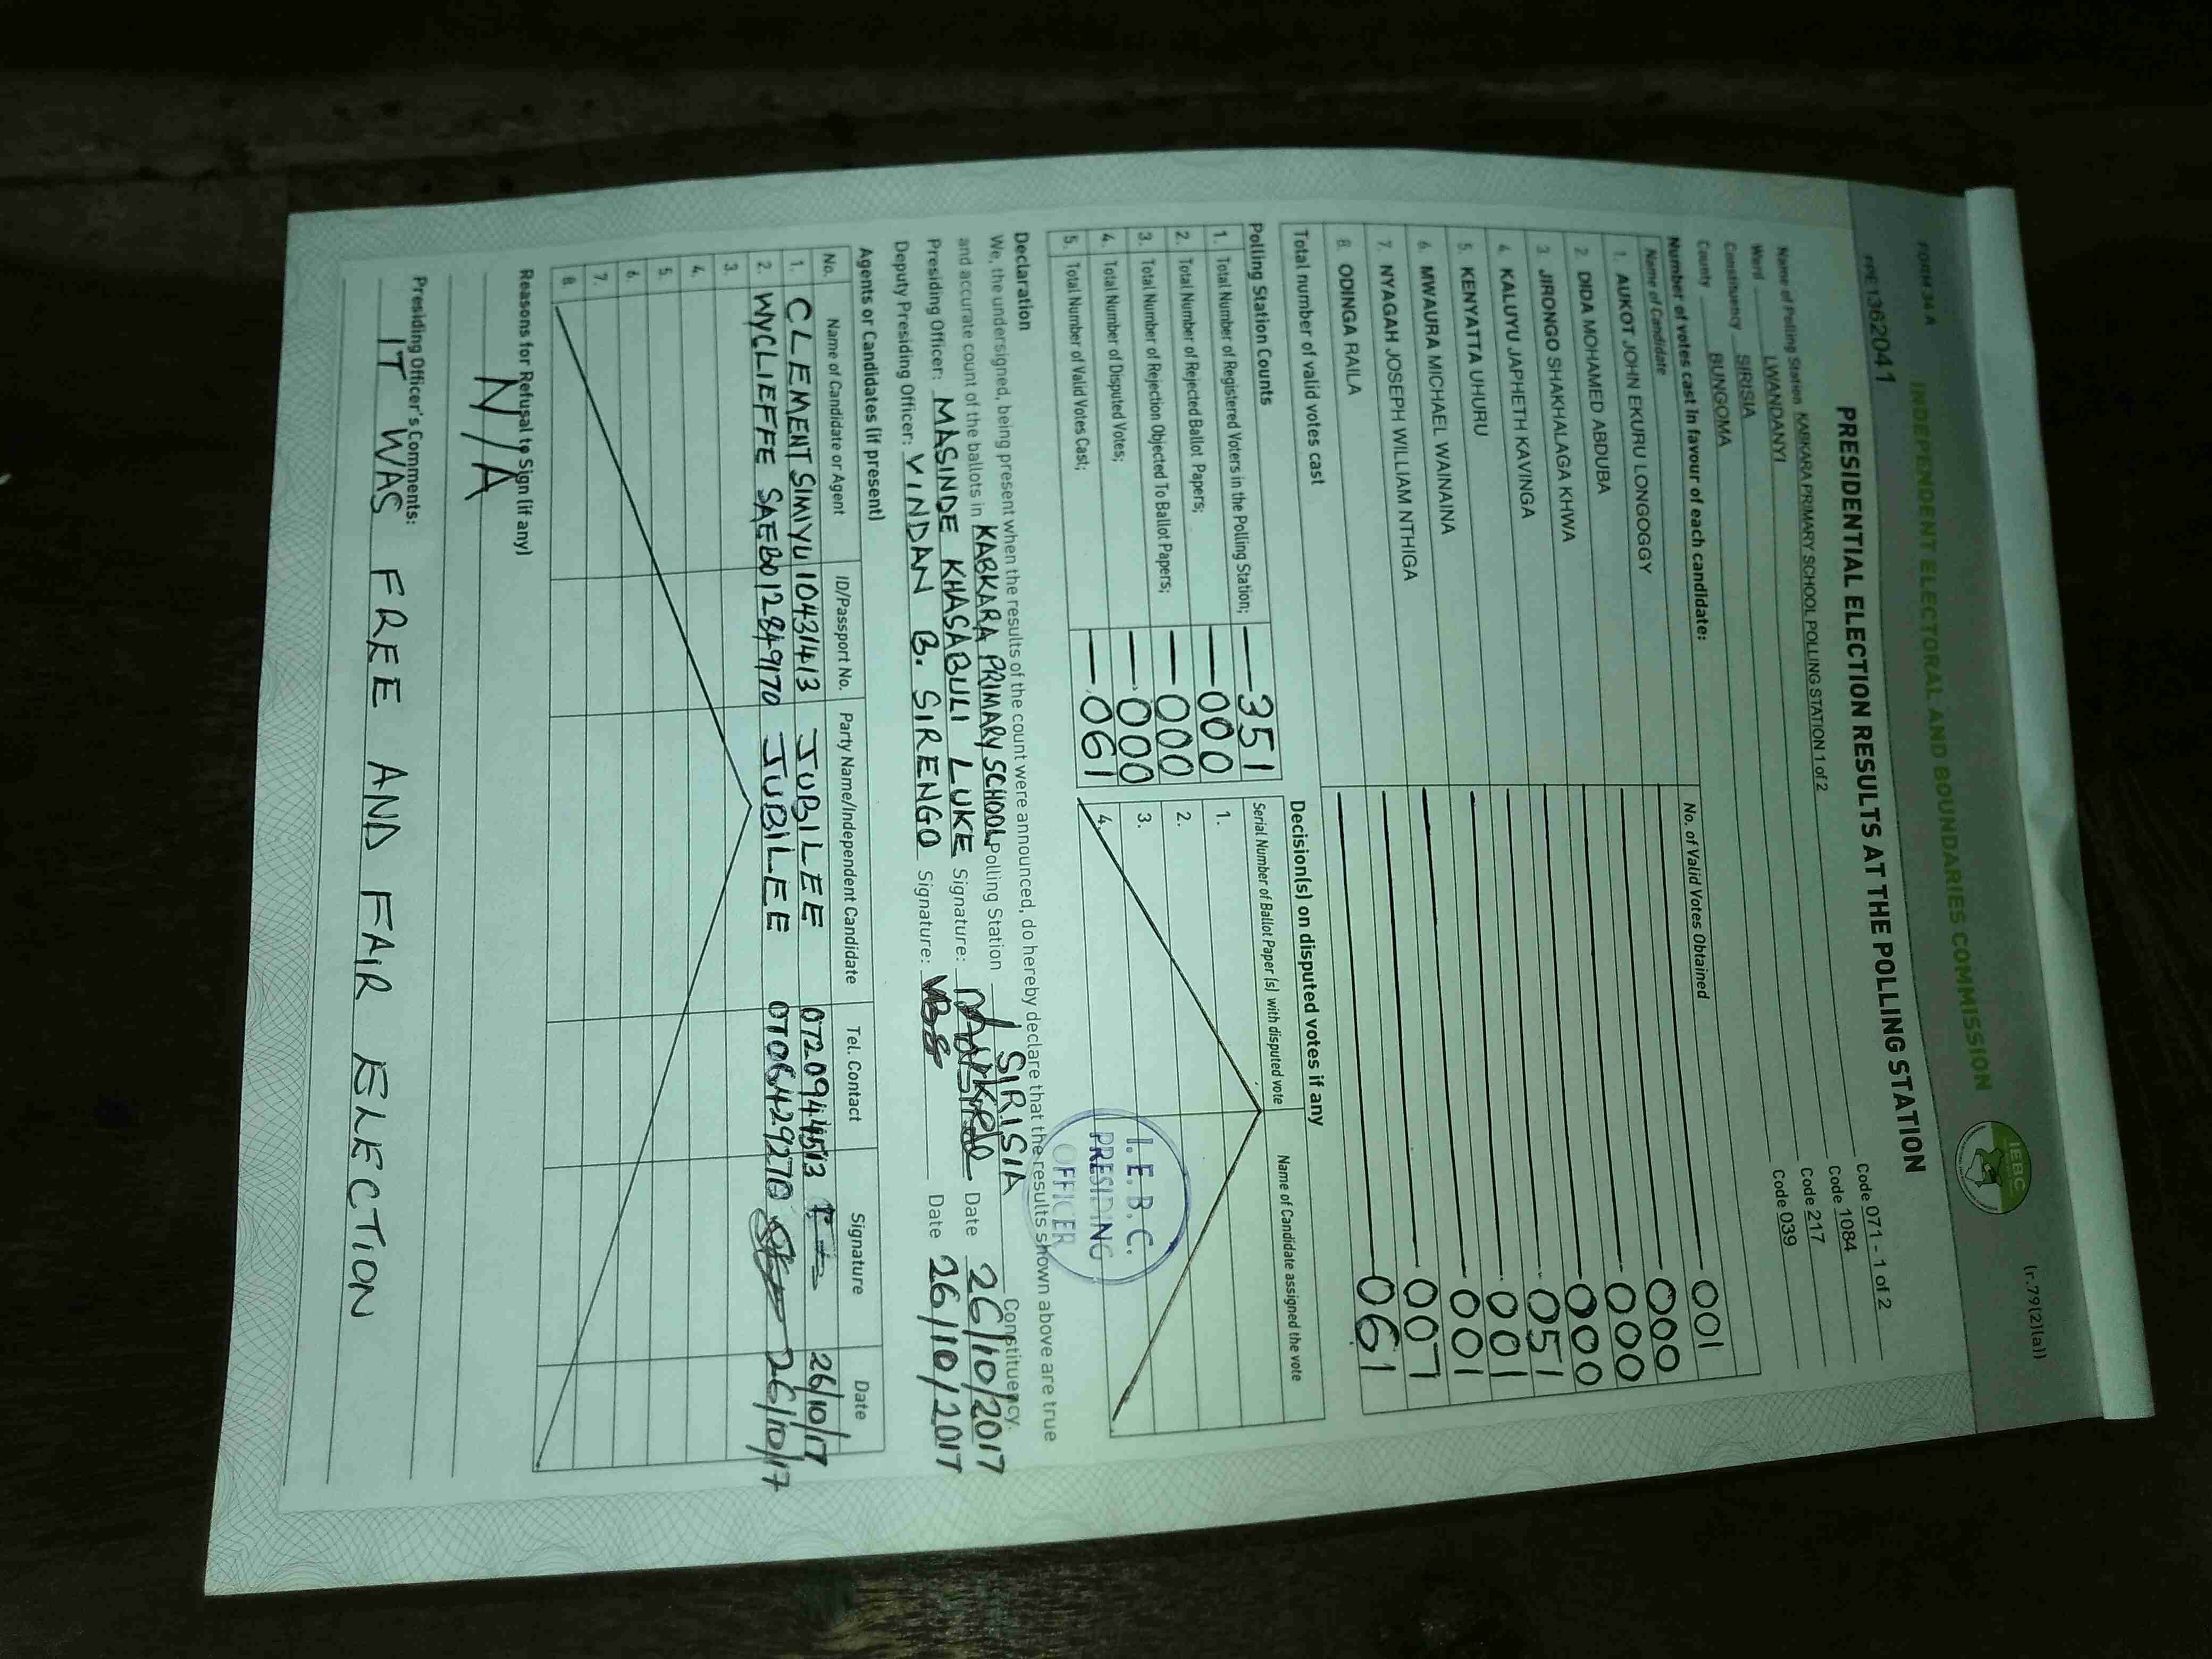 FORM 34 A
(r.79(2)(a))
INDEPENDENT ELECTORAL AND BOUNDARIES COMMISSION
IEBC
PRE1362041
PRESIDENTIAL ELECTION RESULTS AT THE POLLING STATION
Name of Polling Station KABKARA PRIMARY SCHOOL POLLING STATION 1 of 2 Code 071 - 1 of 2
Ward LWANDANYI Code 1084
Constituency SIRISIA Code 217
County BUNGOMA Code 039
Number of votes cast in favour of each candidate:
Name of Candidate No. of Valid Votes Obtained
1. AUKOT JOHN EKURU LONGOGGY 001
2. DIDA MOHAMED ABDUBA 000
3. JIRONGO SHAKHALAGA KHWA 000
4. KALUYU JAPHETH KAVINGA 000
5. KENYATTA UHURU 051
6. MWAURA MICHAEL WAINAINA 001
7. NYAGAH JOSEPH WILLIAM NTHIGA 001
8. ODINGA RAILA 007
Total number of valid votes cast 061
Polling Station Counts
1. Total Number of Registered Voters in the Polling Station; 351
2. Total Number of Rejected Ballot Papers; 000
3. Total Number of Rejection Objected To Ballot Papers; 000
4. Total Number of Disputed Votes; 000
5. Total Number of Valid Votes Cast; 061
Decision(s) on disputed votes if any
Serial Number of Ballot Paper (s) with disputed vote Name of Candidate assigned the vote
1.
2.
3.
4.
I.E.B.C.
PRESIDING
OFFICER
Declaration
We, the undersigned, being present when the results of the count were announced, do hereby declare that the results shown above are true
and accurate count of the ballots in KABKARA PRIMARY SCHOOL Polling Station SIRISIA Constituency.
Presiding Officer: MASINDE KHASABULI LUKE Signature: Date 26/10/2017
Deputy Presiding Officer: VINDAN B. SIRENGO Signature: VBS Date 26/10/2017
Agents or Candidates (if present)
No. Name of Candidate or Agent ID/Passport No. Party Name/Independent Candidate Tel. Contact Signature Date
1. CLEMENT SIMIYU 10431413 JUBILEE 0720944513 26/10/17
2. WYCLIEFFE SAEBO 12849170 JUBILEE 0706429270 26/10/17
3.
4.
5.
6.
7.
8.
Reasons for Refusal to Sign (if any)
N/A
Presiding Officer's Comments:
IT WAS FREE AND FAIR ELECTION